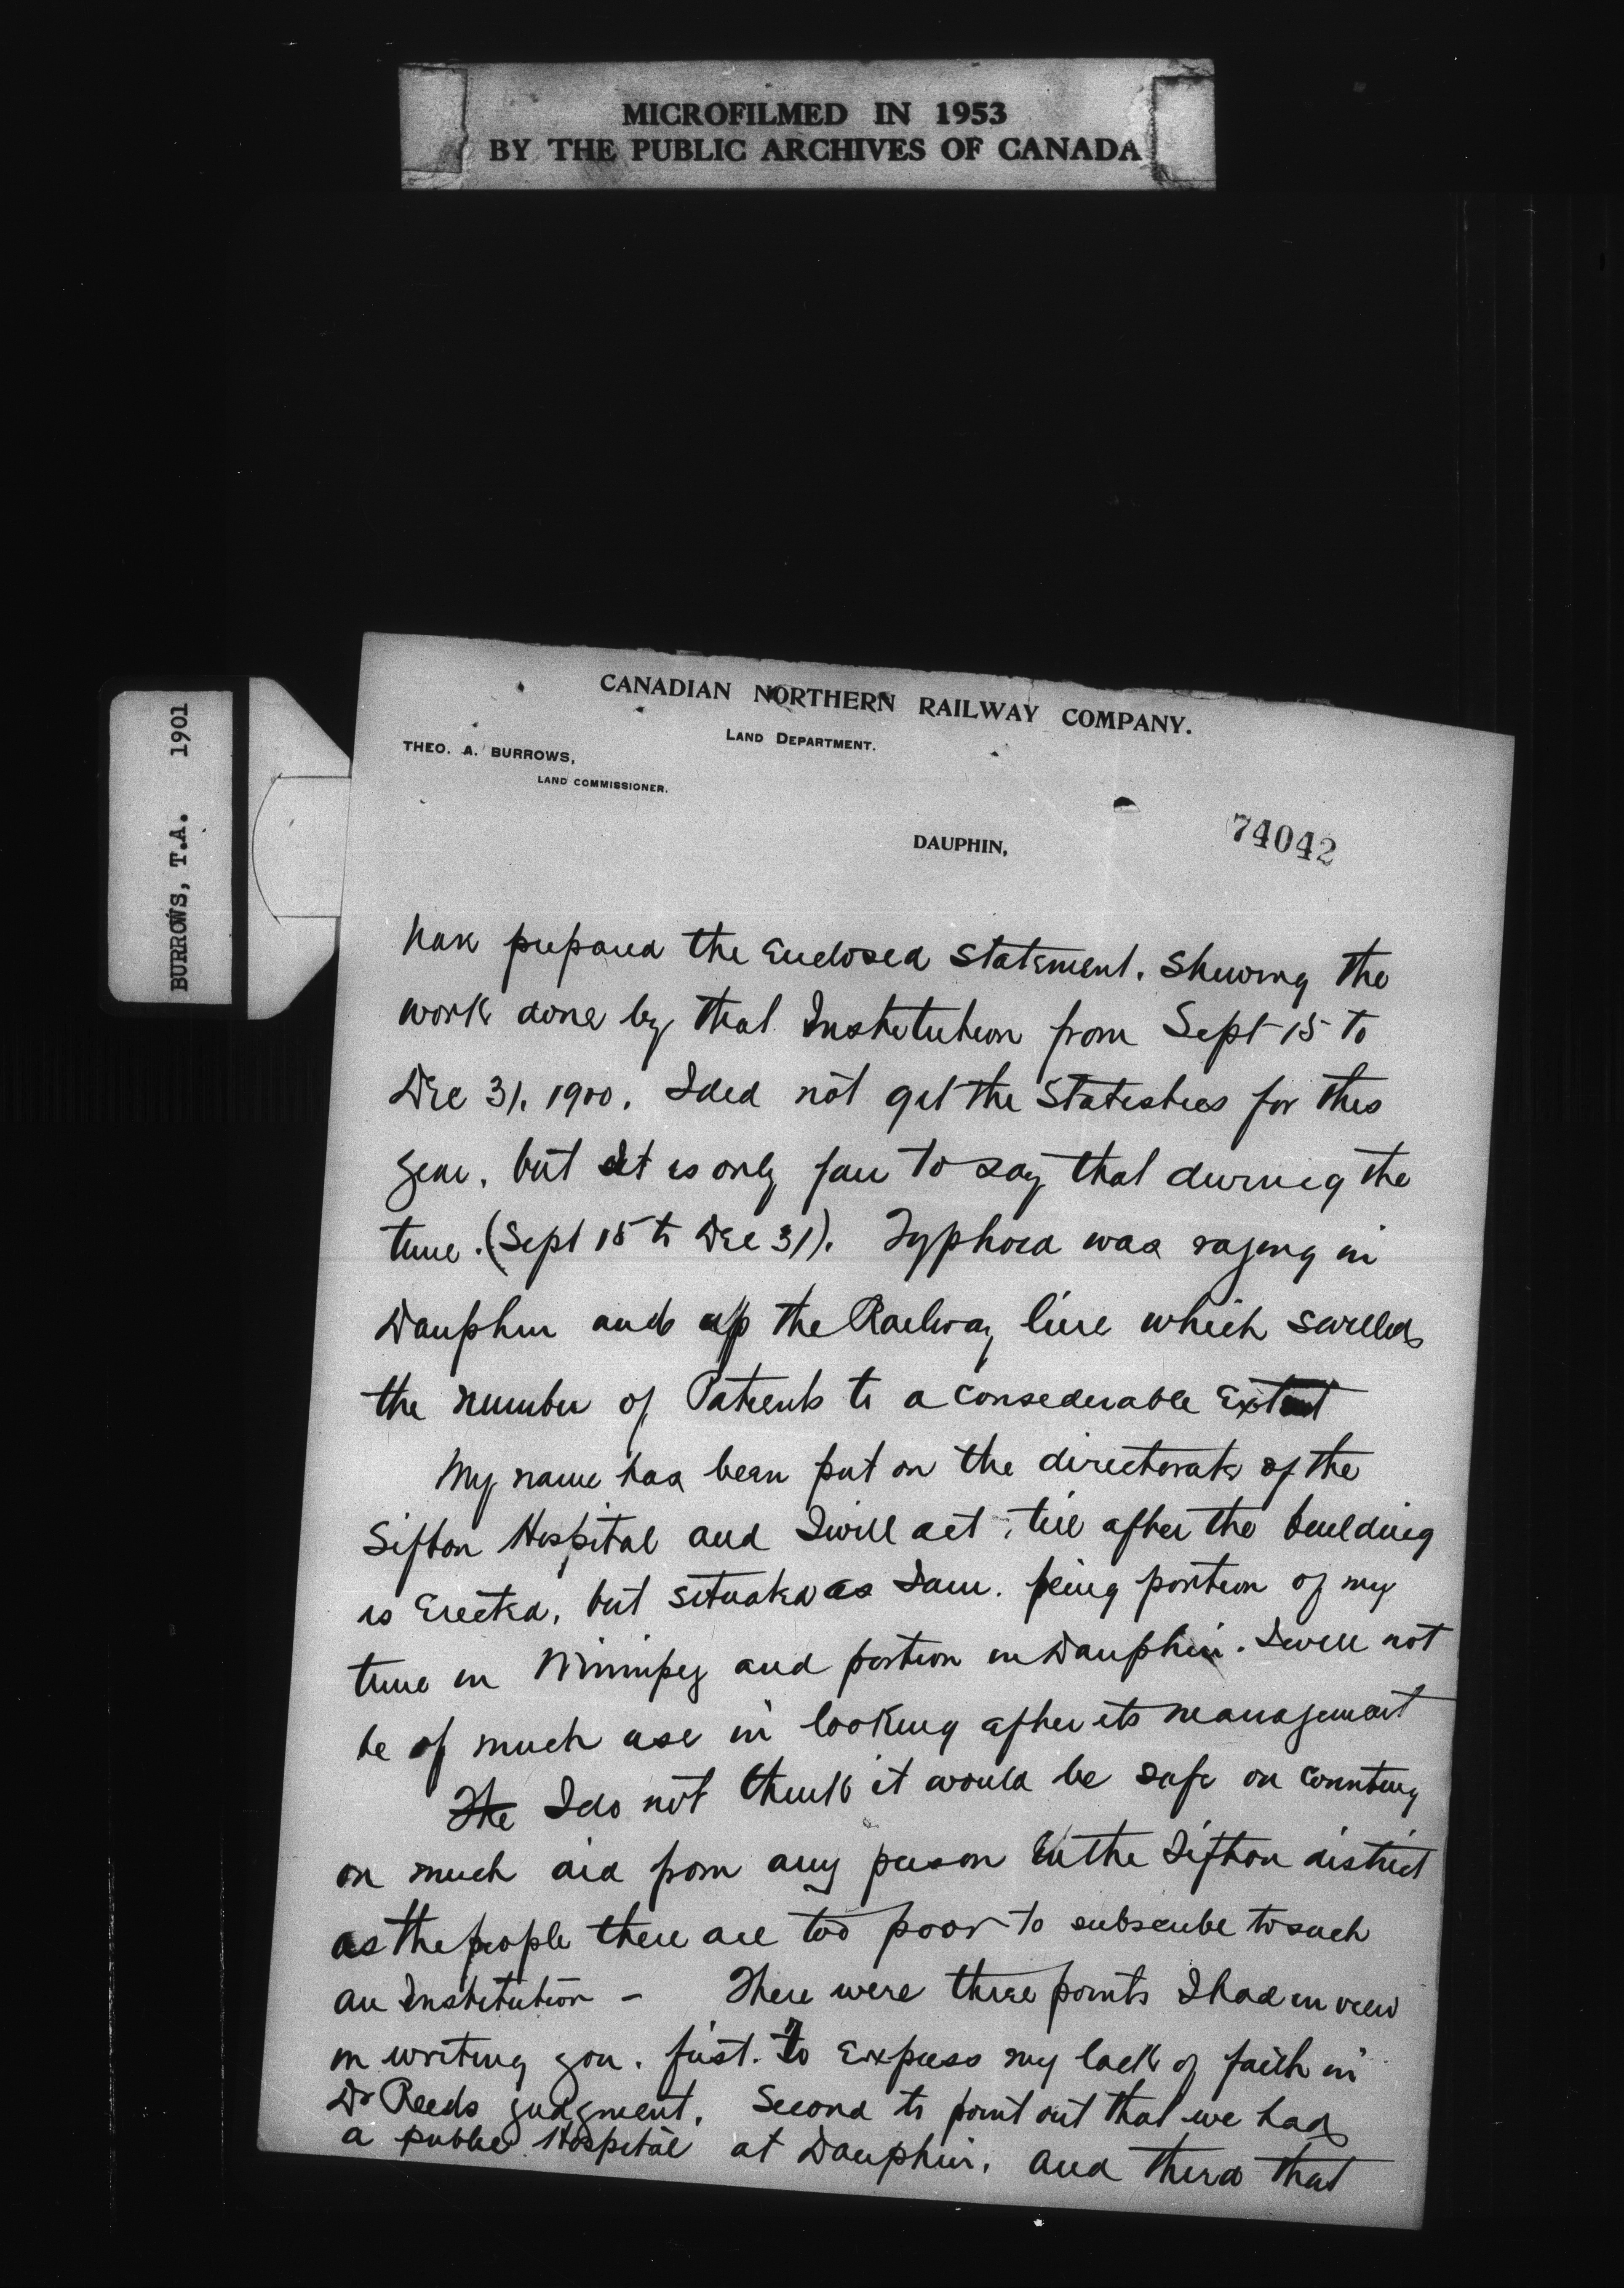 MICROFILMED IN 1953
BY THE PUBLIC ARCHIVES OF CANADA
BURROWS, T.A. 1901
CANADIAN NORTHERN RAILWAY COMPANY.
LAND DEPARTMENT.
THEO. A. BURROWS,
LAND COMMISSIONER.
74042
DAUPHIN,
have prepared the Enclosed Statement. Shewing the
work done by that Institution from Sept 15 to
Dec 31. 1900. I did not get the Statistics for this
year, but it is only fair to say that during the
time. (Sept 15 to Dec 31). Typhoid was raging in
Dauphin and up the Railway line which swelled
the number of Patients to a considerable Extent
My name has been put on the directorate of the
Sifton Hospital and I will act, till after the building
is Erected, but situated as I am. being portion of my
time in Winnipeg and portion in Dauphin. I will not
be of much use in looking after its management
The I do not think it would be safe on counting
on much aid from any person in the Sifton district
as the people there are too poor to subscribe to such
an Institution – There were three points I had in view
in writing you. first. To Express my lack of faith in
Dr Reeds judgment. Second to point out that we had
a public Hospital at Dauphin. and third that